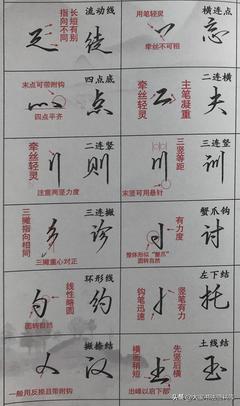 流动线
长短有别
指向不同
徒
横连点
用笔轻灵
牵丝不可粗
忘
四点底
末点可带附钩
四点平齐
点
二连横
牵丝轻灵
主笔凝重
夫
二连竖
牵丝轻灵
注意两竖力度
则
三连竖
三竖等距
末竖可用悬针
训
三连撇
三撇指向相同
三撇重心对正
诊
蟹爪钩
有力度
整体形似“蟹爪”
圆转自然
讨
环形线
线性略圆
圆转自然
约
左下结
钩笔迅速
竖笔有力
托
撇捺结
一般用反捺且带附钩
汉
土线结
横画稍短
先竖后横
出峰以启下部
玉